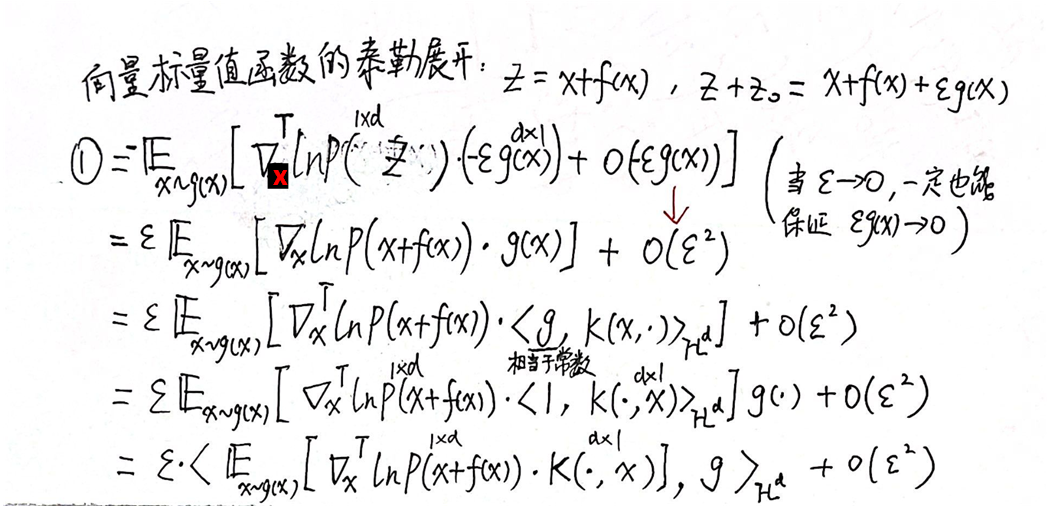 向量标量值函数的泰勒展开: z = x+f(x) , z+z₀ = x+f(x)+εg(x)
① = -𝔼_{x~q(x)} [ ∇_x^T lnp( z ) · (-εg(x)) + O(-εg(x)) ] (当 ε→0, 一定也能保证 εg(x)→0)
1×d d×1
= ε 𝔼_{x~q(x)} [ ∇_x lnp(x+f(x)) · g(x) ] + O(ε²)
= ε 𝔼_{x~q(x)} [ ∇_x^T lnp(x+f(x)) · <g, k(x,·)>_{H^d} ] + O(ε²)
相当于常数
1×d d×1
= ε 𝔼_{x~q(x)} [ ∇_x^T lnp(x+f(x)) · <1, k(·,x)>_{H^d} ] g(·) + O(ε²)
1×d d×1
= ε · < 𝔼_{x~q(x)} [ ∇_x^T lnp(x+f(x)) · k(·,x) ], g >_{H^d} + O(ε²)